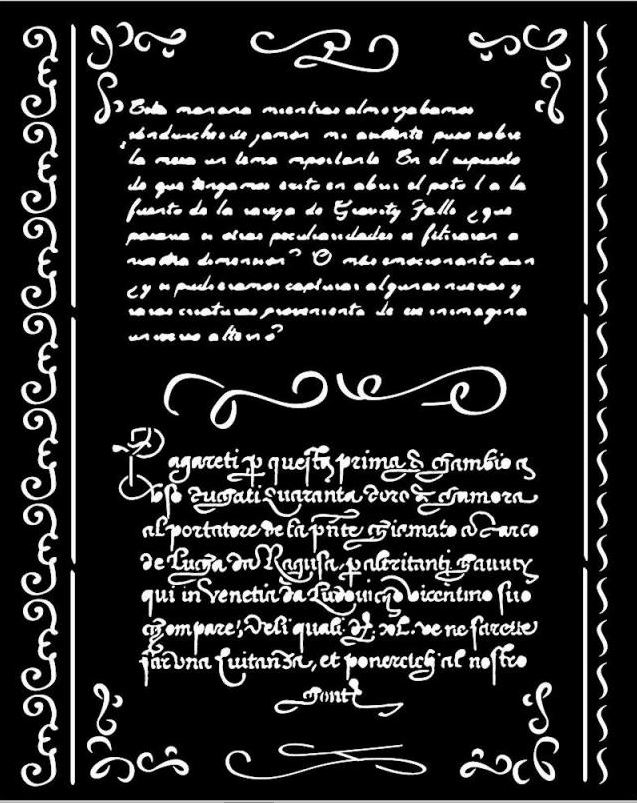 Esta manana mientras almorzabamos
sandwiches de jamon mi asistente puso sobre
la mesa un tema mportante En el supuesto
de que tengamos exito en abrir el porta l a la
fuente de la rareza de Gravity Falls ¿que
pasaria si otras peculiaridades se filtraran a
nuestra dimension? O mas emocionante aun
¿y si pudieramos capturar algunas nuevas y
raras criaturas proveniente de ese inimagina
universo alterno?
agareti p questa prima di Cambio a
loso ducati quaranta doro di Camera
al portatore de la pnte chiamato Marco
de Lucha da Ragusa, p altritanti hauuti
qui in Venetia da Ludouicho vicentino suo
Compare, Deli quali di. xL. ve ne farete
far vna Quitanza, et ponercteli al nostro
Conti